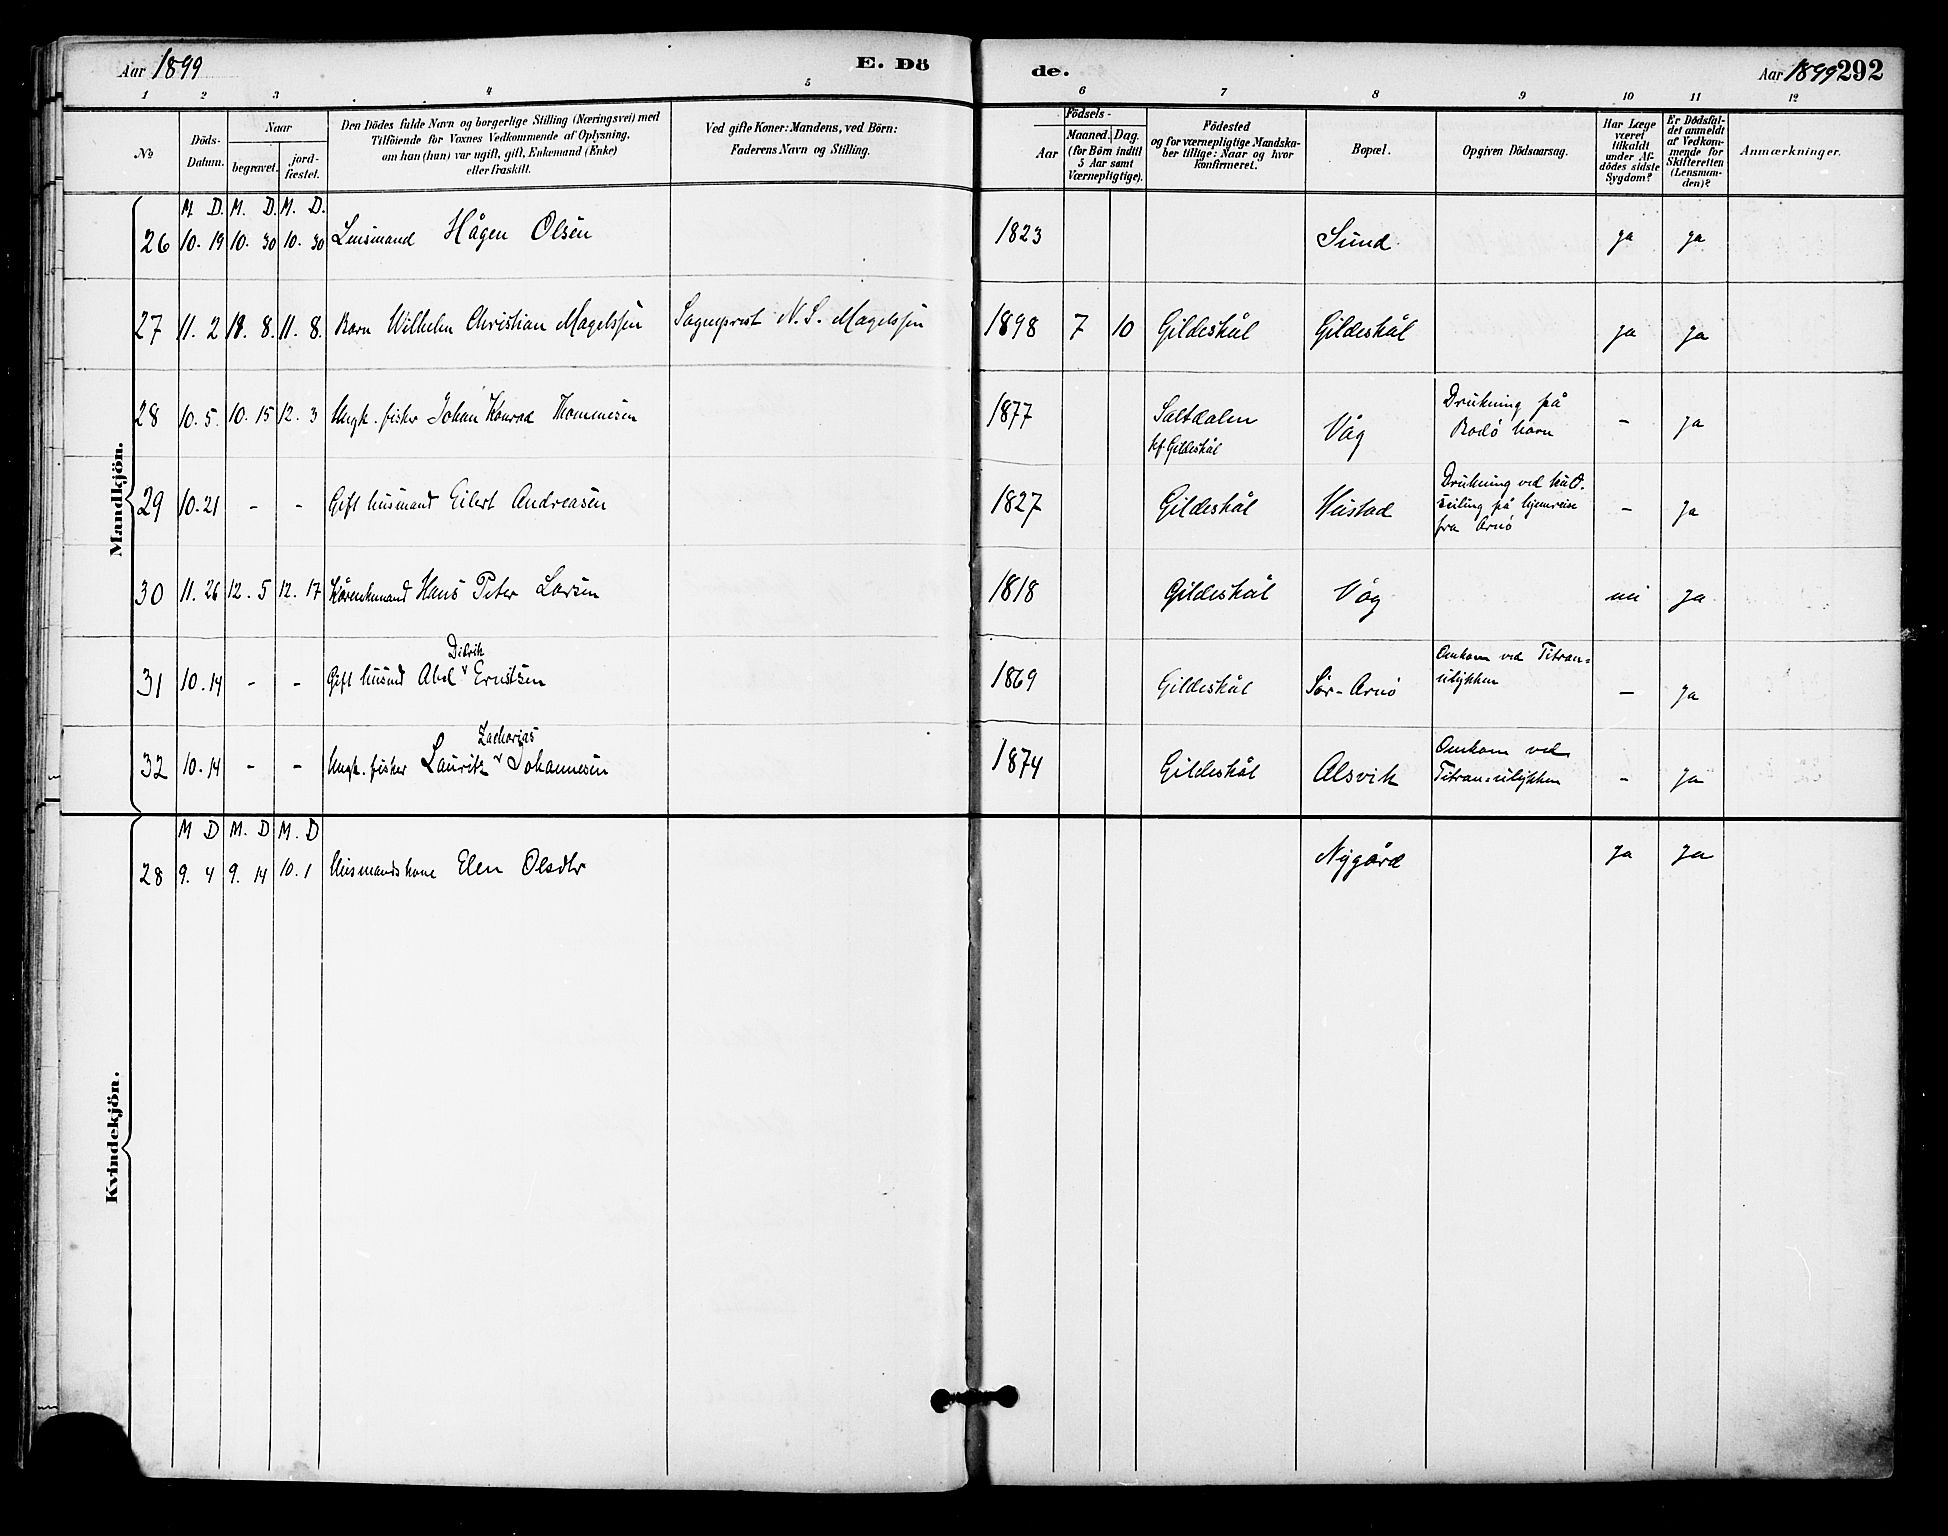 Aar 1899 E. Dö de. Aar 1899 292
1 2 3 4 5 6 7 8 9 10 11 12
№
Döds-
Datum.
Naar
begravet.
jord-
fæstet.
Den Dödes fulde Navn og borgerlige Stilling (Næringsvei) med
Tilföiende for Voxnes Vedkommende af Oplysning,
om han (hun) var ugift, gift, Enkemand (Enke)
eller fraskilt.
Ved gifte Koner: Mandens, ved Börn:
Faderens Navn og Stilling.
Födsels-
Aar
Maaned. Dag.
(for Börn indtil
5 Aar samt
Værnepligtige).
Födested
og for værnepligtige Mandska-
ber tillige: Naar og hvor
konfirmeret.
Bopæl.
Opgiven Dödsaarsag.
Har Læge
været
tilkaldt
under Af-
dödes sidste
Sygdom?
Er Dödsfal-
det anmeldt
af Vedkom-
mende for
Skifteretten
(Lensman-
den)?
Anmærkninger.
Mandkjön.
M. D. M. D. M. D.
26 10. 19 10. 30 10. 30 Lensmand Hågen Olsen 1823 Sund ja ja
27 11. 2 11. 8. 11. 8. Barn Wilhelm Christian Magelssen Sogneprest N. S. Magelssen 1898 7 10 Gildeskål Gildeskål ja ja
28 10. 5. 10. 15 12. 3 Ungk. fisker Johan Konrad Thommesen 1877 Saltdalen
kf. Gildeskål
Våg Drukning på
Bodö havn
– ja
29 10. 21 - - Gift husmand Eilert Andreasen 1827 Gildeskål Hustad Drukning ved
seiling på hjemreise
fra Arnö
– ja
30 11. 26 12. 5 12. 17 Kårenkemand Hans Peter Larsen 1818 Gildeskål Våg nei ja
Didrik
31 10. 14 - - Gift husmd Abel v Ernstsen 1869 Gildeskål Sör-Arnö Omkom ved Titran=
ulykken
– ja
Zacharias
32 10. 14 - - Ungk. fisker Lauritz v Johannesen 1874 Gildeskål Alsvik Omkom ved
Titran=ulykken
- ja
Kvindekjön.
M D M. D M. D
28 9. 4 9. 14 10. 1 Husmandskone Elen Olsdtr Nygård ja ja